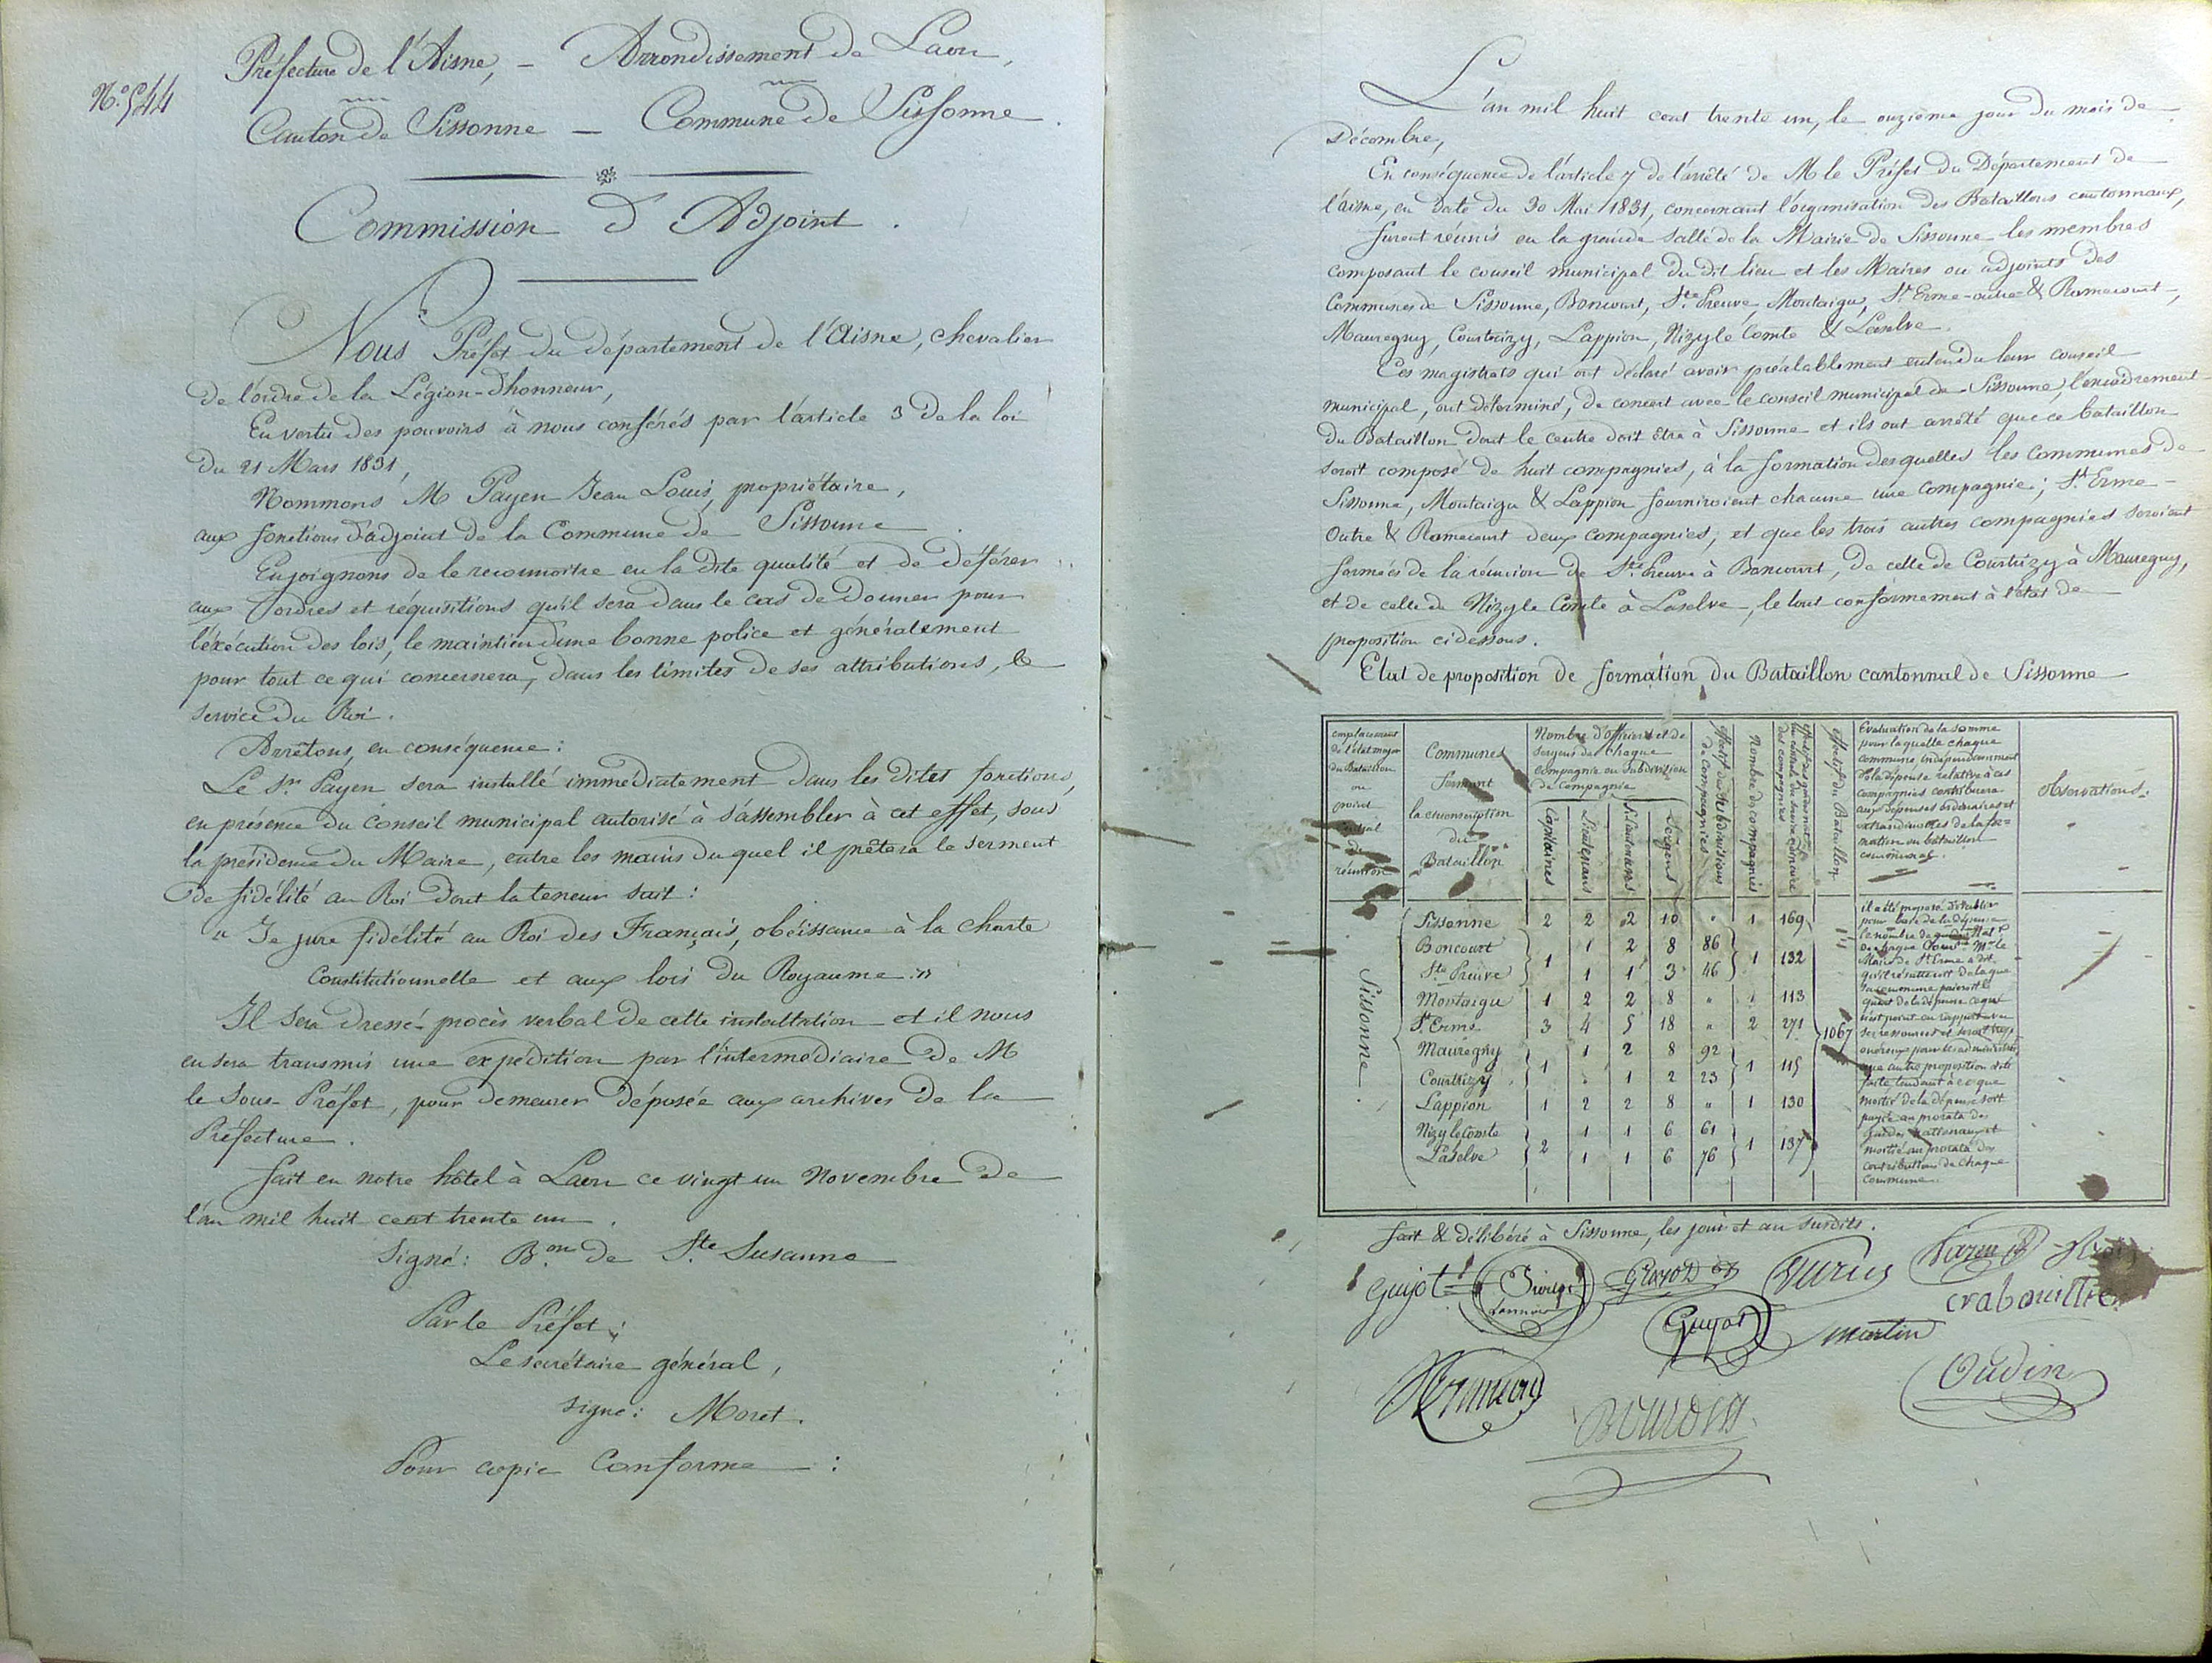 N.º 544
Préfecture de l'Aisne, — Arrondissement de Laon,
Canton de Sissonne — Commune de Sissonne.
Commission d'Adjoint.
Nous Préfet du département de l'Aisne, chevalier
de l'ordre de la Légion-d'honneur,
En vertu des pouvoirs à nous conférés par l'article 3 de la loi
du 21 Mars 1831,
Nommons M Payen Jean Louis, propriétaire,
aux fonctions d'adjoint de la Commune de Sissonne.
Enjoignons de le reconnoitre en la dite qualité et de déférer
aux ordres et réquisitions qu'il sera dans le cas de donner pour
l'éxécution des lois, le maintien d'une bonne police et généralement
pour tout ce qui concernera, dans les limites de ses attributions, le
service du Roi.
Arrêtons, en conséquence :
Le Sr. Payen sera installé immédiatement dans les dites fonctions,
en présence du Conseil municipal autorisé à s'assembler à cet effet, sous
la présidence du Maire, entre les mains duquel il prêtera le serment
de fidélité au Roi dont la teneur suit :
" Je jure fidélité au Roi des Français, obéissance à la Charte
Constitutionnelle et aux lois du Royaume. "
Il sera dressé procès verbal de cette installation et il nous
en sera transmis une expédition par l'intermédiaire de M
le Sous-Préfet, pour demeurer déposée aux archives de la
Préfecture.
fait en notre hôtel à Laon ce vingt un Novembre de
l'an mil huit cent trente un.
Signé : B.on de Ste Susanne
Par le Préfet :
Le secrétaire général,
signé : Moret.
Pour copie Conforme :
L'an mil huit cent trente un, le onzième jour du mois de
Décembre,
En conséquence de l'article 7 de l'arrêté de M le Préfet du Département de
l'aisne, en date du 30 Mai 1831, concernant l'organisation des Bataillons cantonnaux,
furent réunis en la grande salle de la Mairie de Sissonne les membres
composant le conseil municipal du dit lieu et les Maires ou adjoints des
Communes de Sissonne, Boncourt, Ste Preuve, Montaigu, St Erme-outre & Ramecourt,
Mauregny, Courtrizy, Lappion, Nizy le Comte & Laselve.
Ces magistrats qui ont déclaré avoir préalablement entendu leur conseil
municipal, ont déterminé, de concert avec le conseil municipal de Sissonne, l'encadrement
du Bataillon dont le centre doit être à Sissonne et ils ont arrêté que ce bataillon
seroit composé de huit compagnies, à la formation desquelles les Communes de
Sissonne, Montaigu & Lappion fourniroient chacune une compagnie ; St Erme-
Outre & Ramecourt deux compagnies, et que les trois autres compagnies seroient
formées de la réunion de Ste Preuve à Boncourt, de celle de Courtrizy à Mauregny,
et de celle de Nizy le Comte à Laselve, le tout conformement à l'état de
proposition cidessous.
Etat de proposition de formation du Bataillon cantonnal de Sissonne
emplacement de l'état major du Bataillon ou point central de réunion
Communes formant la circonscription du Bataillon
Nombre d'officiers et de sergens de chaque compagnie ou subdivision de compagnie
Capitaines
Lieutenans
S. Lieutenans
Sergens
effectif des subdivisions de compagnies
Nombre de compagnies
effectif du Bataillon
Evaluation de la somme
pour laquelle chaque
commune, indépendamment
de la dépense relative à ces
compagnies contribuera
aux dépenses ordinaires et
extraordinaires de la for=
mation en bataillon
communal.
Observations.
Sissonne.
Sissonne 2 2 2 10 " 1 169
Boncourt 1 1 2 8 86 1 132
Ste Preuve 1 1 3 46
Montaigu 1 2 2 8 " 1 113
St Erme 3 4 5 18 " 2 271
1067
Mauregny 1 1 2 8 92 1 115
Courtrizy . 1 2 23
Lappion 1 2 2 8 " 1 130
Nizy le Comte 2 1 1 6 61 1 137
Laselve 1 1 6 76
il a été proposé d'établir
pour base de la dépense
le nombre de
de chaque Comne. Mr le
Maire de St Erme a dit
qu'il résulteroit de la que
sa commune paieroit le
quart de la dépense ce qui
n'est point en rapport avec
ses ressources et seroit trop
onéreux pour ses administrés,
une autre proposition a été
faite tendant à ce que
moitié de la dépense soit
payée au prorata des
gardes nationaux et
moitié au prorata des
contributions de chaque
commune.
fait & délibéré à Sissonne, les jour et an susdits.
Guijot
crabouillet
Guyot
martin
Oudin